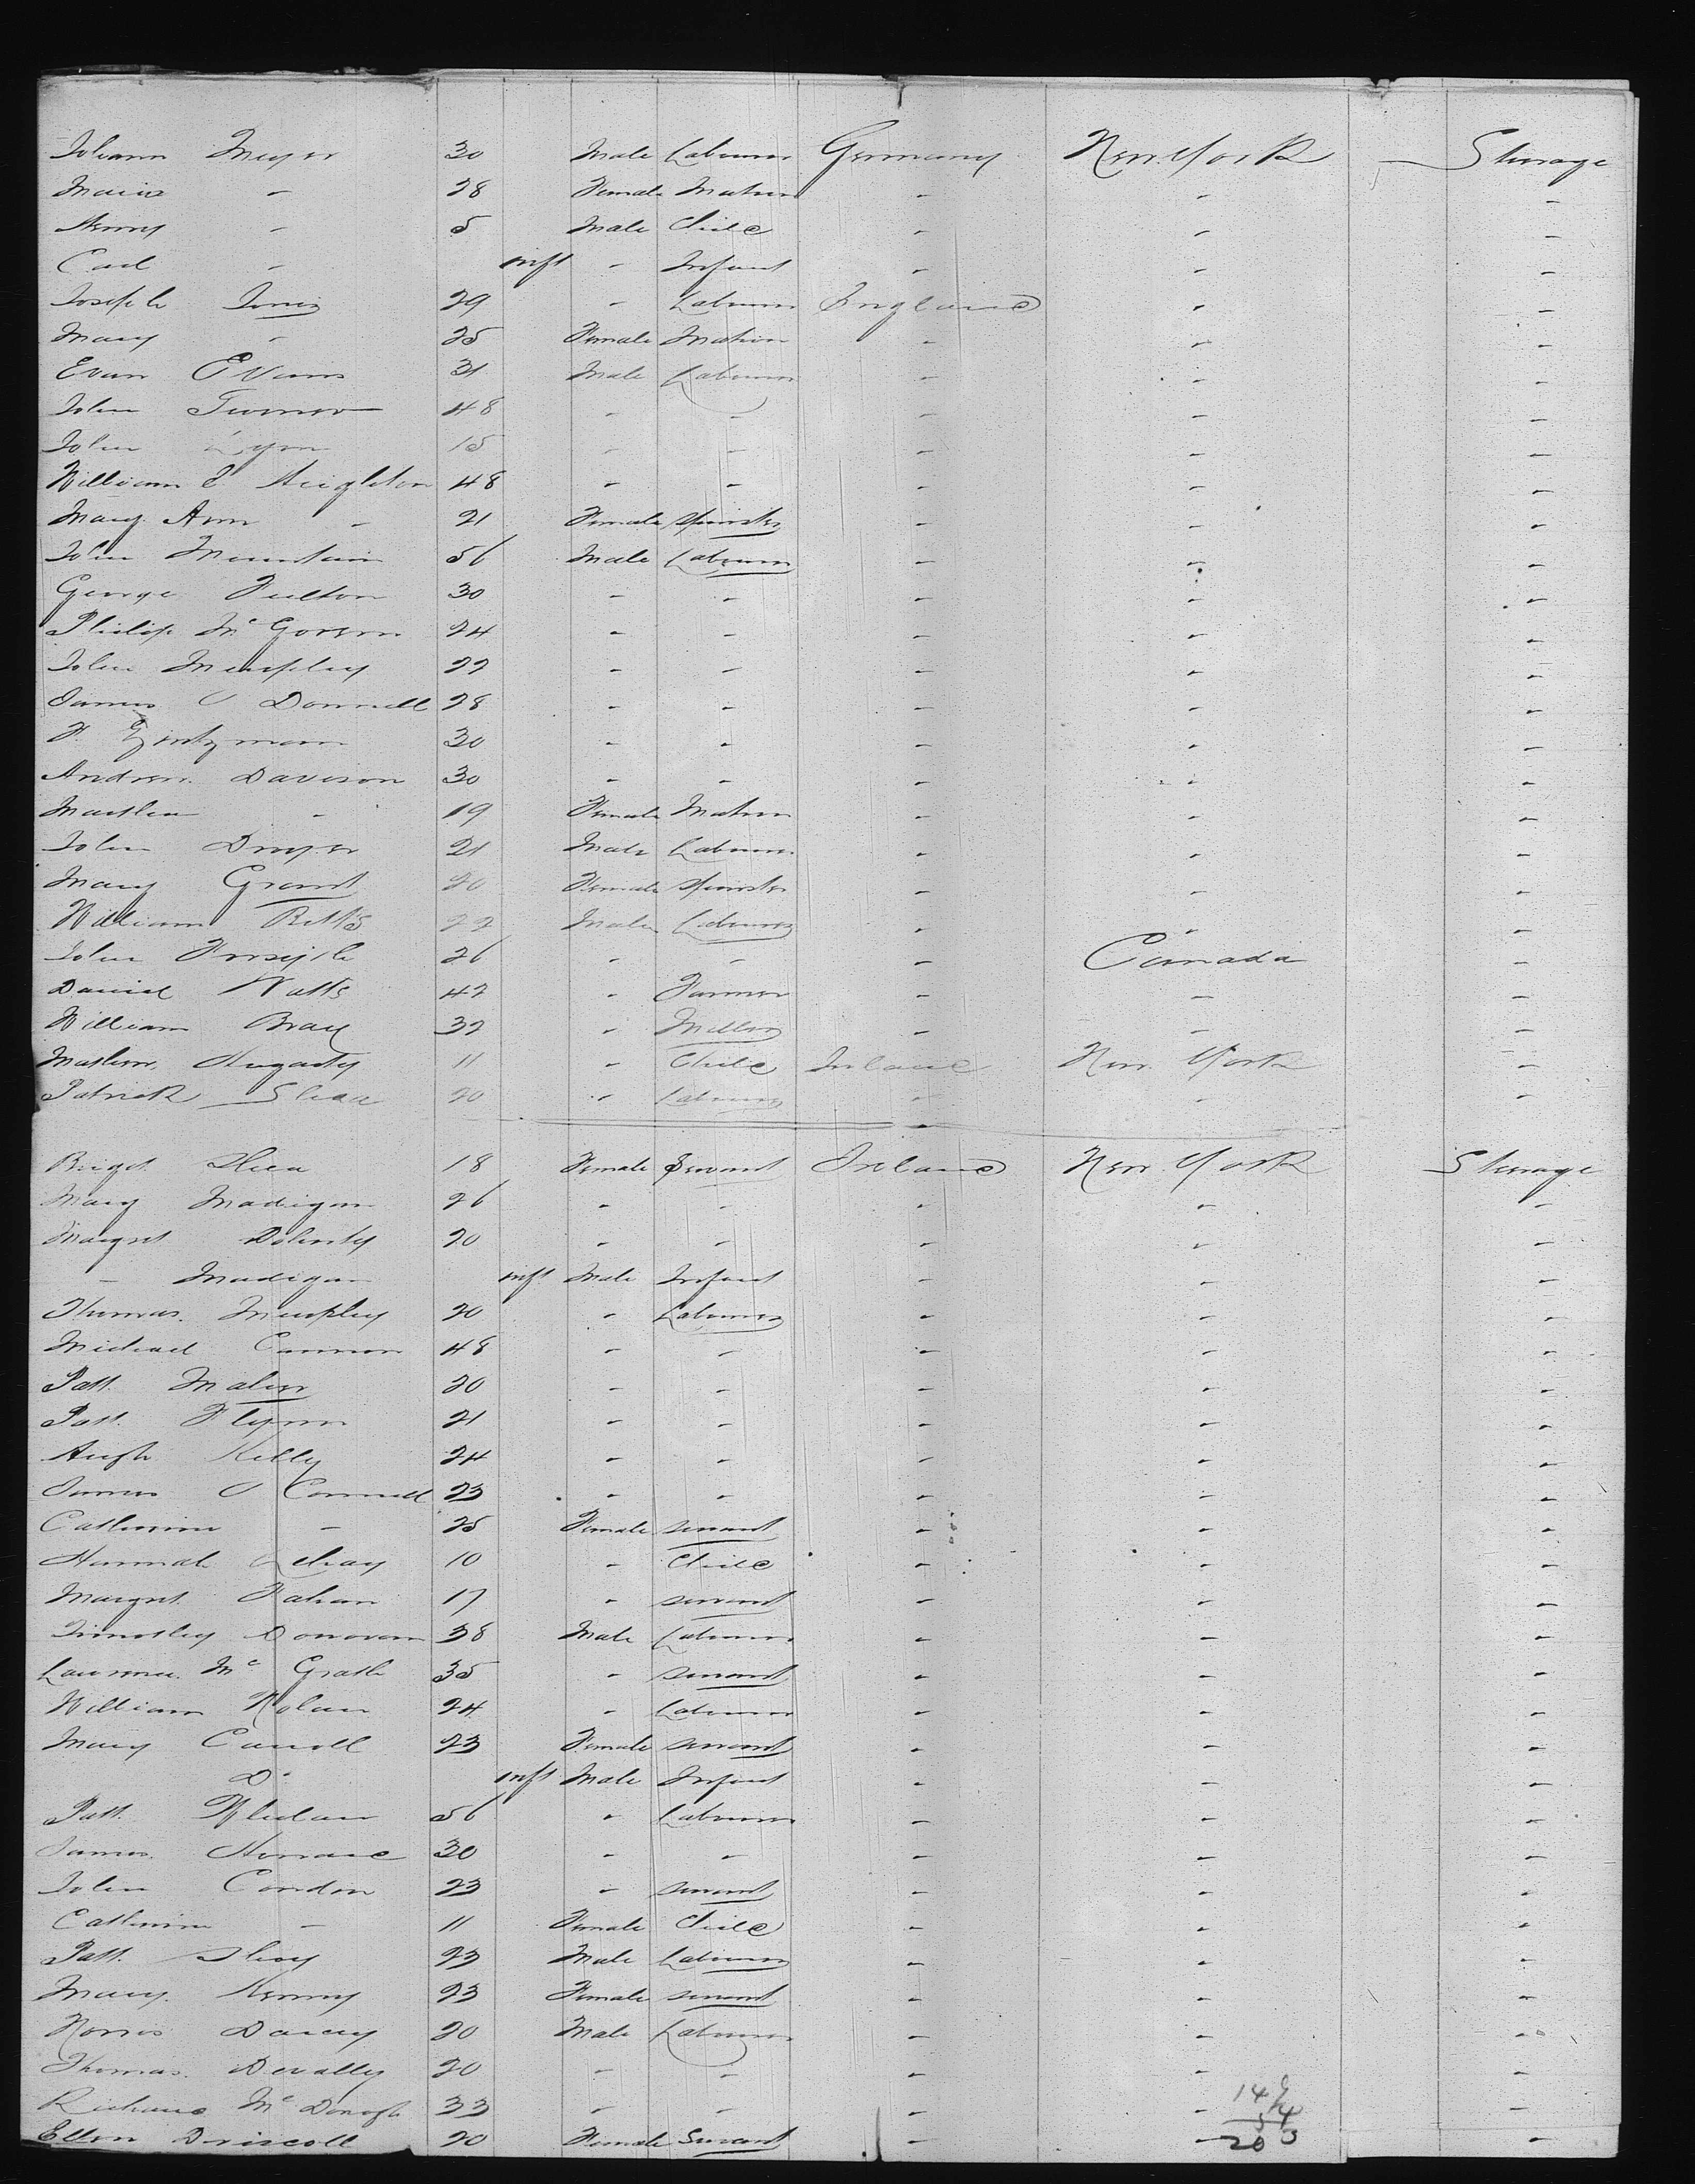 Johann Meyer 30 Male Labourer Germany New York - Sterage
Maria - 28 Female Matron - - -
Henry - 5 Male Child - - -
Carl - inft - Infant - - -
Joseph Jones 29 - Labourer England - -
Mary - 25 Female Matron - - -
Evan Evans 31 Male Labourer - - -
John Turner 48 - - - - -
John Lyon 15 - - - - -
William E Heighton 48 - - - - -
Mary Ann - 21 Female Spinster - - -
John Mountain 56 Male Labourer - - -
George Fulton 30 - - - - -
Philip Mc Govern 24 - - - - -
John Murphy 22 - - - - -
James O Donnell 28 - - - - -
F. 30 - - - - -
Andrew Davison 30 - - - - -
Martha - 19 Female Matron - - -
John Dwyer 21 Male Labourer - - -
Mary Grant 20 Female Spinster - - -
William Betts 22 Male Labourer - - -
John Forsyth 26 - - - Canada -
Daniel Watts 42 - Farmer - - -
William Bray 32 - Miller - - -
Mathew Hegarty 11 - Child Ireland New York -
Patrick Shea 20 - Labourer - - -
Briget Shea 18 Female Servant Ireland New York Sterage
Mary Madigan 26 - - - - -
Margret Doherty 20 - - - - -
- Madigan inft Male Infant - - -
Thomas Murphy 20 - Labourer - - -
Michael Cannon 48 - - - - -
Patt Maher 20 - - - - -
Patt Flynn 21 - - - - -
Hugh Kelly 24 - - - - -
James O Connell 23 - - - - -
Catherine - 25 Female servant - - -
Hannah Lehay 10 - Child - - -
Margret Fahan 17 - servant - - -
Timothy Donovan 38 Male Labourer - - -
Lawrence Mc Grath 35 - servant - - -
William Nolan 24 - Labourer - - -
Mary Carroll 23 Female servant - - -
Do inft Male Infant - - -
Patt Whelan 56 - Labourer - - -
James 30 - - - - -
John Condon 23 - servant - - -
Catherine - 11 Female Child - - -
Patt 23 Male Labourer - - -
Mary Kenny 23 Female servant - - -
Norris Darcy 20 Male Labourer - - -
Thomas Devally 20 - - - - -
Richard Mc Donogh 33 - - - - -
Ellen Driscoll 20 Female Servant - - -